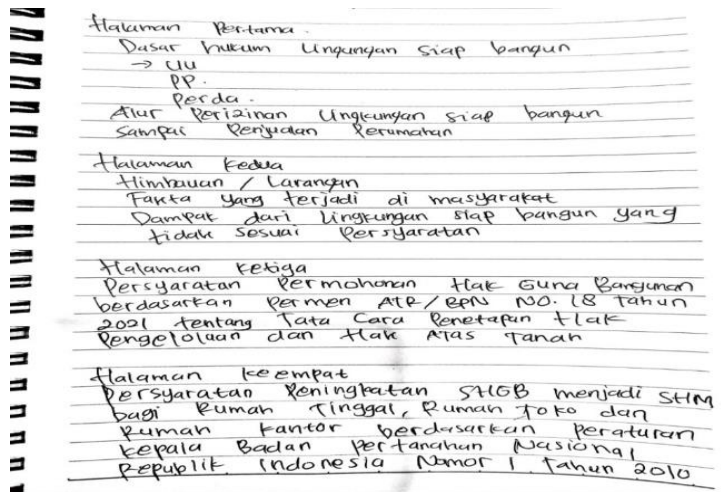 Halaman Pertama.
Dasar hukum Lingungan siap bangun
→ UU
PP.
Perda.
Alur Perizinan Lingkungan siap bangun
sampai Penjualan Perumahan
Halaman Kedua
Himbauan / Larangan
Fakta yang terjadi di masyarakat
Dampak dari Lingkungan siap bangun yang
tidak sesuai Persyaratan
Halaman Ketiga
Persyaratan Permohonan Hak Guna Bangunan
berdasarkan Permen ATR/BPN NO. 18 Tahun
2021 tentang Tata Cara Penetapan Hak
Pengelolaan dan Hak Atas Tanah
Halaman keempat
Persyaratan Peningkatan SHGB menjadi SHM
bagi Rumah Tinggal, Rumah Toko dan
Rumah kantor berdasarkan Peraturan
kepala Badan Pertanahan Nasional
Republik Indonesia Nomor 1 Tahun 2010